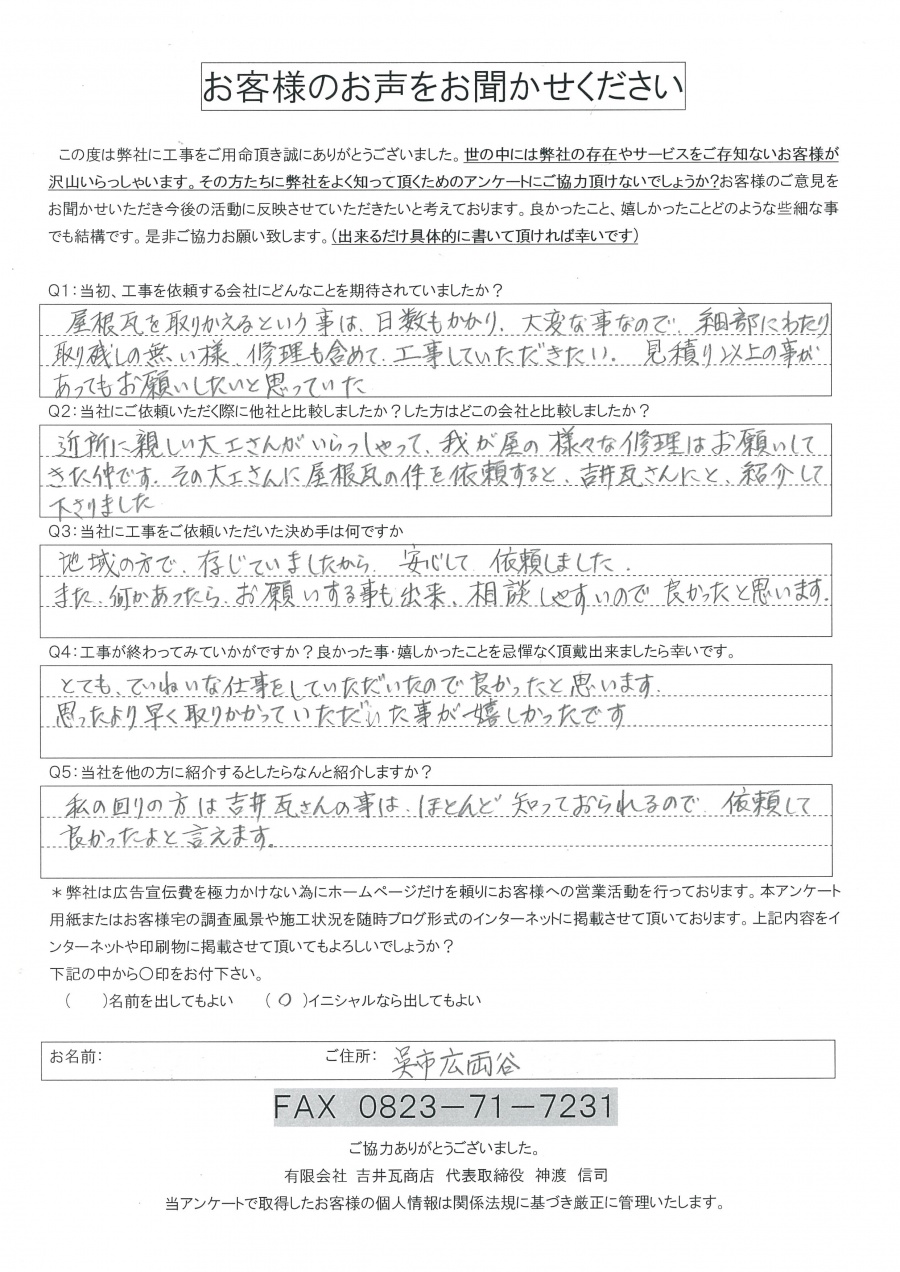 お客様のお声をお聞かせください
この度は弊社に工事をご用命頂き誠にありがとうございました。世の中には弊社の存在やサービスをご存知ないお客様が
沢山いらっしゃいます。その方たちに弊社をよく知って頂くためのアンケートにご協力頂けないでしょうか?お客様のご意見を
お聞かせいただき今後の活動に反映させていただきたいと考えております。良かったこと、嬉しかったことどのような些細な事
でも結構です。是非ご協力お願い致します。(出来るだけ具体的に書いて頂ければ幸いです)
Q1:当初、工事を依頼する会社にどんなことを期待されていましたか?
屋根瓦を取りかえるという事は、日数もかかり、大変な事なので、細部にわたり
取残しの無い様、修理も含めて、工事していただきたい。見積り以上の事が
あってもお願いしたいと思っていた
Q2:当社にご依頼いただく際に他社と比較しましたか?した方はどこの会社と比較しましたか?
近所に親しい大工さんがいらっしゃって、我が屋の様々な修理はお願いして
きた仲です。その大工さんに屋根瓦の件を依頼すると、吉井瓦さんにと、紹介して
下さりました
Q3:当社に工事をご依頼いただいた決め手は何ですか
地域の方で、存じていましたから、安心して依頼しました.
また、何かあったら、お願いする事も出来、相談しやすいので良かったと思います.
Q4:工事が終わってみていかがですか?良かった事・嬉しかったことを忌憚なく頂戴出来ましたら幸いです。
とても、ていねいな仕事をしていただいたので良かったと思います.
思ったより早く取りかかっていただいた事が嬉しかったです
Q5:当社を他の方に紹介するとしたらなんと紹介しますか?
私の回りの方は吉井瓦さんの事は、ほとんど知っておられるので、依頼して
良かったよと言えます。
*弊社は広告宣伝費を極力かけない為にホームページだけを頼りにお客様への営業活動を行っております。本アンケート
用紙またはお客様宅の調査風景や施工状況を随時ブログ形式のインターネットに掲載させて頂いております。上記内容をイ
ンターネットや印刷物に掲載させて頂いてもよろしいでしょうか?
下記の中から〇印をお付下さい。
( )名前を出してもよい (〇)イニシャルなら出してもよい
お名前: ご住所: 呉市広両谷
FAX 0823-71-7231
ご協力ありがとうございました。
有限会社 吉井瓦商店 代表取締役 神渡 信司
当アンケートで取得したお客様の個人情報は関係法規に基づき厳正に管理いたします。